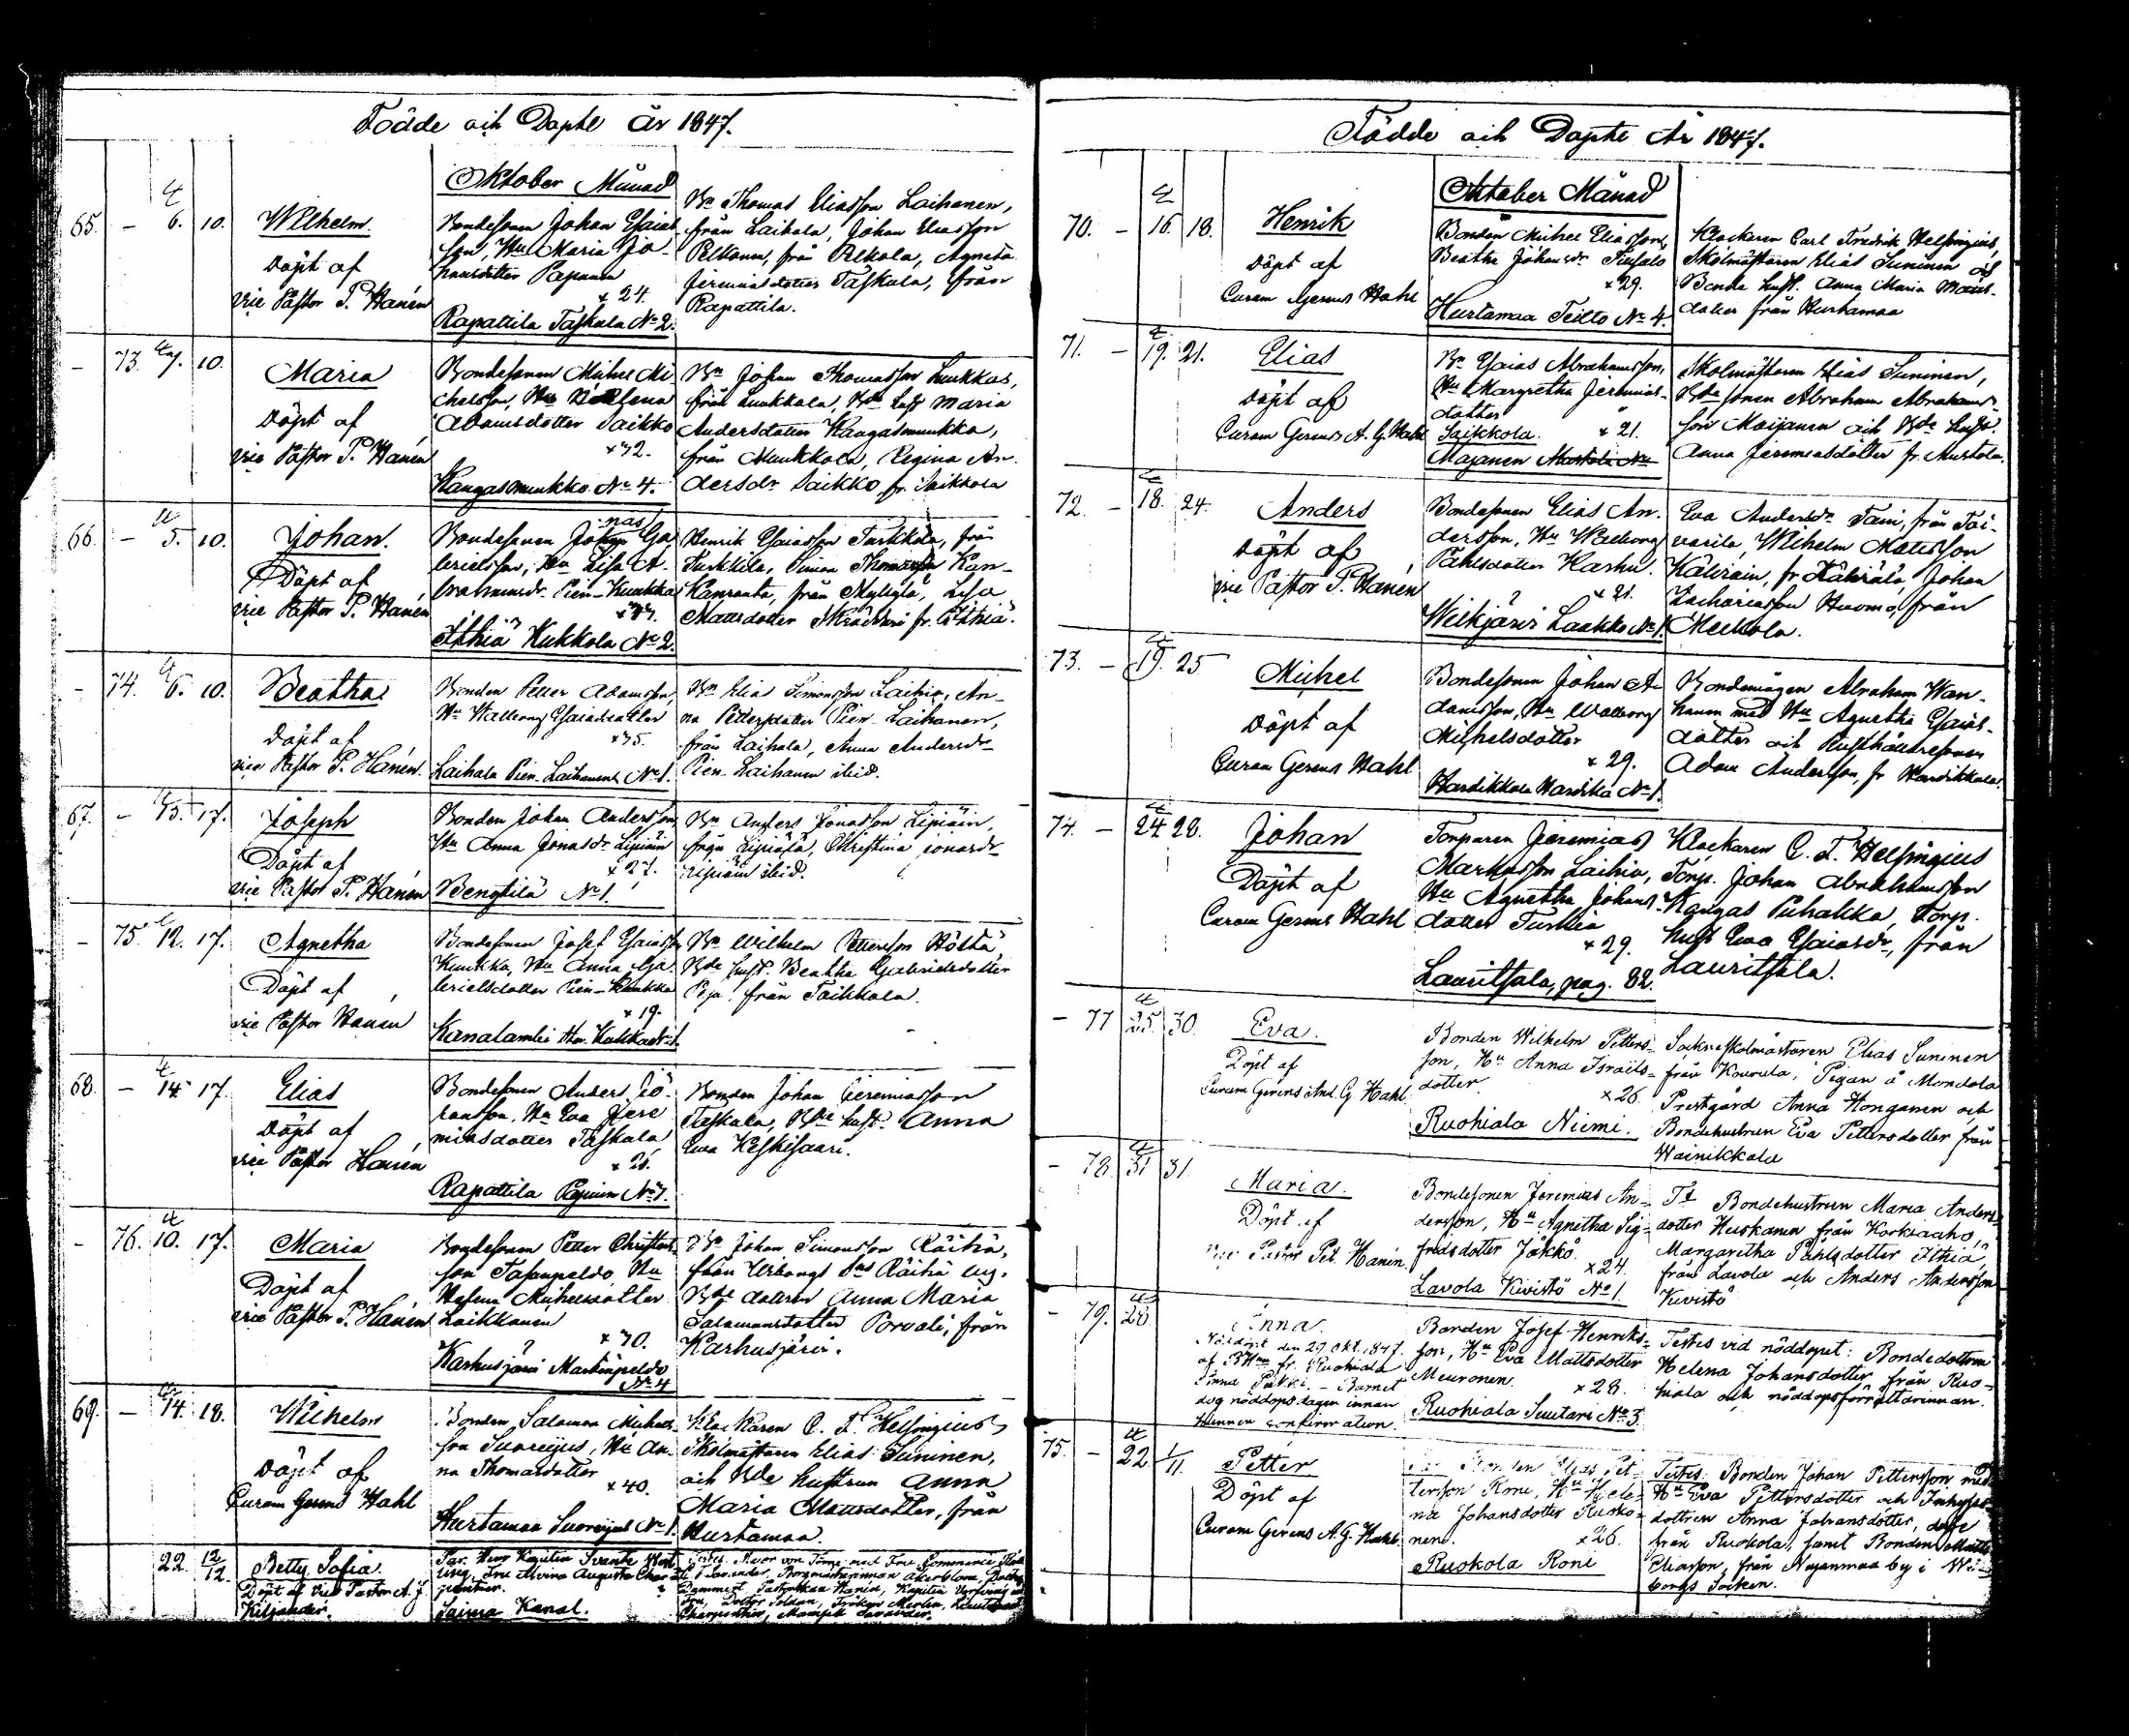 Födde och Döpte År 1847.
Oktober Månad
65. – 6. 10. Wilhelm.
Döpt af
vice Pastor P. Hanén
Bondesonen Johan Esaias-
son, Hu Maria Jo-
hansdotter Papunen
× 24.
Rapattila Taskula No 2.
Bn Thomas Eliasson Laihanen,
från Laihala, Johan Eliasson
Pelkonen, från Pelkola, Agneta
Jeremiasdotter Taskula, från
Rapattila.
– 73. 7. 10. Maria
Döpt af
vice Pastor P. Hanén
Bondesonen Michel Mi-
chelsson, Hu Helena
Adamsdotter Saikko
× 32.
Kangasmunkko No 4.
Bn Johan Thomasson Luukkas,
från Luukkola, Bde hust Maria
Andersdotter Kangasmunkko,
från Munkkola, Regina An-
dersdr Saikko fr. Saikkola
66. – 5. 10. Johan.
Döpt af
vice Pastor P. Hanén
nas
Bondesonen Johan Ga-
brielsson, Hu Lisa A-
brahamsdr. Pien-Kuukka
Ihthiä Kukkola No 2.
Henrik Esaiasson Turkkila, från
Turkkila, Simon Thomasson Kan-
Kanranta, från Mylylä, Lisa
Mattsdotter fr. Ihtiä.
– 74. 6. 10. Beatha
Döpt af
vice Pastor P. Hanén.
Bonden Petter Adamsson,
Hu Walborg Esaiadotter
× 35.
Laihala Pien-Laihanen No 1.
Bn Elias Simonsson Laihia, An-
na Pettersdotter Pien-Laihanen,
från Laihala, Anna Andersdr
Pien-Laihanen ibid.
67. – 13. 17. Joseph
Döpt af
vice Pastor P. Hanén
Bonden Johan Andersson,
Hu Anna Jonasdr Lipiäin
× 27.
Bengtilä No 1.
Bn Anders Jonasson Lipiäin,
från Lipiälä, Christina Jonasdr
Lipiäin ibid.
– 75. 12. 17. Agnetha
Döpt af
vice Pastor Hanén
Bondesonen Josef Esaiasson
Kuukka, Hu Anna Ga-
brielsdotter Pien-Kuukka
× 19.
Kanalambi No 1.
Bn Wilhelm Pettersson Höltä,
Bde hust. Beatha Gabrielsdotter
från Taikkala.
68. – 14. 17. Elias
Döpt af
vice Pastor Hanén
Bondesonen Anders Jö-
ransson, Hu Eva Jere-
miasdotter Taskula
× 21.
Rapattila Papunen No 7.
Bonden Johan Jeremiasson
Taskula, Bde hust. Anna
Eva Keskisaari.
– 76. 10. 17. Maria
Döpt af
vice Pastor P. Hanén
Bondesonen Petter Christers-
son Tasanpeldo, Hu
Helena Michelsdotter
Laikkanen
× 30.
Karhusjärvi Martinpeldo
No 4
Bn Johan Simonsson Räihä,
från Urbangs Räihä
Bde dottren Anna Maria
Salamonsdotter Porvali, från
Karhusjärvi.
69. – 14. 18. Wilhelm
Döpt af
Curam Gerens Hahl
Bonden Salamon Michels-
son Suoreijus, Hu An-
na Thomasdotter
× 40.
Hurtamaa Suoreijus No 1.
Klockaren C. F. Helsingius,
Skolmästaren Elias Suninen,
och Bde hustrun Anna
Maria Mattsdotter, från
Hurtamaa.
22. 12/12. Betty Sofia.
Döpt af Vice Pastor A. J.
Kiljander.
Par. Herr Kapiten Svante
Fru Alvina Augusta Char-
pentier.
Saima Kanal.
Testes, Major von Törne med Fru
Lavonius, Borgmästarinnan Åkerblom, Doctor
Dammert, Pastorskan Hanén, Kapiten
Fru, Doctor Soldan, Fröken Merlin,
Charpentier, Mamsell Lavonius.
Födde och Döpte År 1847.
Oktober Månad
70. – 16. 18. Henrik
Döpt af
Curam Gerens Hahl
Bonden Michel Eliasson,
Beatha Johansdr Piesalo
× 29.
Hurtamaa Teilto No 4.
Klockaren Carl Fredrik Helsingius,
Skolmästaren Elias Suninen och
Bonde hust. Anna Maria Matts-
dotter från Hurtamaa
71. – 19. 21. Elias
Döpt af
Curam Gerens A. G. Hahl
Bn Esaias Abrahamsson,
Hu Margretha Jeremias-
dotter
Saikkola. × 21.
Majanen
Skolmästaren Elias Suninen,
Bde sonen Abraham Abrahams-
son Moijanen och Bde hust.
Anna Jeremiasdotter fr. Mustola.
72. – 18. 24. Anders
Döpt af
vice Pastor P. Hanén
Bondesonen Elias An-
dersson, Hu Walborg
Påhlsdotter Karhu.
× 21.
Wilkjärvi Laakko No 1.
Eva Andersdr Tani, från Tai-
varila, Wilhelm Matsson
Kähräin, fr Kähärälä, Johan
Zachariasson Huomo, från
Mukkola.
73. – 19. 25 Michel
Döpt af
Curam Gerens Hahl
Bondesonen Johan A-
damsson, Hu Walborg
Michelsdotter
× 29.
Handikkala Handika No 1.
Bondemågen Abraham Wan-
hanen med Hu Agnetha Esaias-
dotter och Rusthållaresonen
Adam Andersson, fr Handikkala
74. – 24 28. Johan
Döpt af
Curam Gerens Hahl
Torparen Jeremias
Markusson Laihia,
Hu Agnetha Johans-
dotter Turkia
× 29.
Lauritsala, pag. 82.
Klockaren C. F. Helsingius
Torp. Johan Abrahamsson
Kangas Puhakka, Torp.
hust Eva Esaiasdr, från
Lauritsala.
– 77 25. 30. Eva.
Döpt af
Curam Gerens And. G. Hahl.
Bonden Wilhelm Petters-
son, Hu Anna Israils-
dotter.
× 26
Ruohiala Niemi.
Sockneskolmästaren Elias Suninen
från Kourula, Pigan å Mondola
Prestgård Anna Honganen och
Bondehustrun Eva Pettersdotter från
Wainikkala
– 78. 31 31. Maria.
Döpt af
Vice Pastor Pet. Hanén.
Bondesonen Jeremias An-
dersson, Hu Agnetha Sig-
fridsdotter Jäkkö.
× 24.
Lavola Kivistö No 1.
Tt Bondehustrun Maria Anders-
dotter Huskanen från Korkiaaho,
Margaretha Påhlsdotter Ithiä,
från Lavola och Anders Andersson
Kivistö
– 79. 28. Anna.
Nöddöpt den 29 Okt. 1847.
af Bn fr. Ruohiala
Anna – Barnet
dog nöddopsdagen innan
hunnen confirmation.
Bonden Josef Henriks-
son, Hu Eva Mattsdotter
Meuronen.
× 28.
Ruohiala Suutari No 3
Testes vid nöddopet: Bondedottren
Helena Johansdotter från Ruo-
hiala och nöddopsförrättarinnan.
75. – 22. 1/11. Petter
Döpt af
Curam Gerens A. G. Hahl.
Bonden Elias Pet-
tersson Rone, Hu Hele-
na Johansdotter Rusko-
nen.
× 26.
Ruokola Roni
Testes: Bonden Johan Pettersson med
Hu Eva Pettersdotter och Inhyses
dottren Anna Johansdotter, alla
från Ruokola, samt Bonden Matts
Eliasson, från Nujanmaa by i Wi-
borgs Socken.